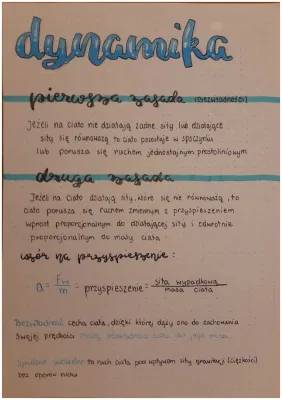 dynamika
pierwsza zasada (BEZWŁADNOŚCI)
Jeżeli na ciało nie działają żadne siły lub działające
siły się równoważą to ciało pozostaje w spoczynku
lub porusza się ruchem jednostajnym prostoliniowym
druga zasada
Jeżeli na ciało działają siły, które się nie równoważą, to
ciało porusza się ruchem zmiennym z przyspieszeniem
wprost proporcjonalnym do działającej siły i odwrotnie
proporcjonalnym do masy ciała
wzór na przyspieszenie:
a = Fw/m = przyspieszenie = siła wypadkowa/masa ciała
Bezwładność cecha ciała, dzięki której dąży ono do zachowania
swojej prędkości
to ruch ciała pod wpływem siły grawitacji (ciężkości)
bez oporów ruchu